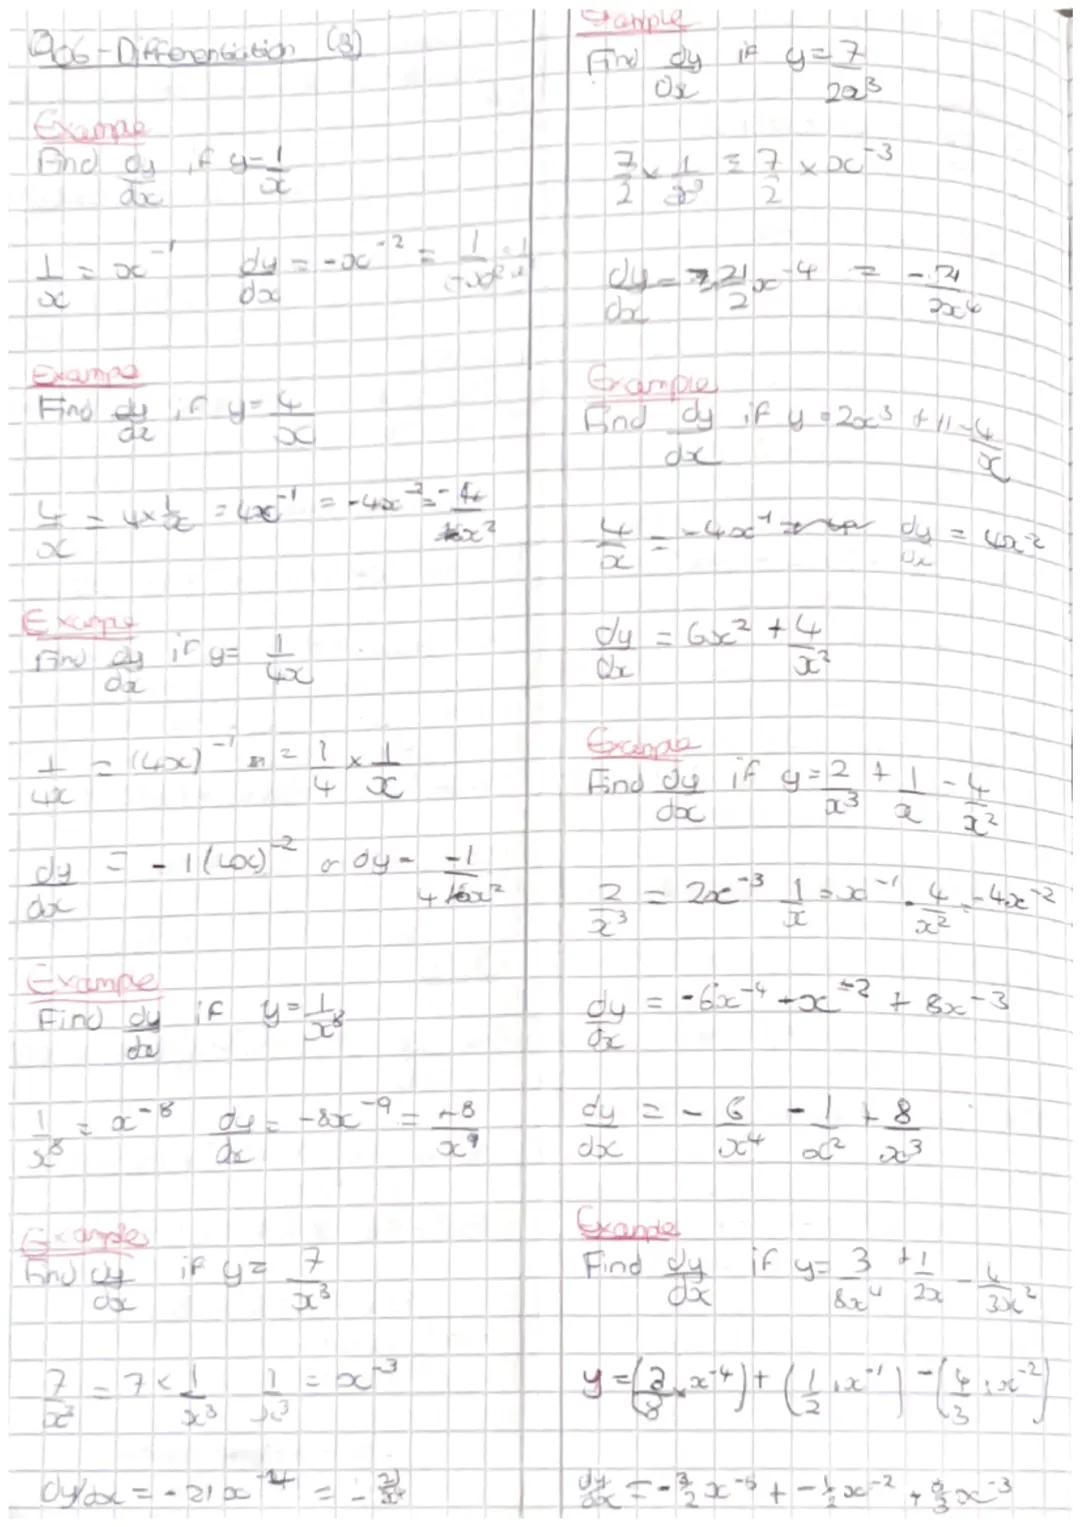 206 - Differentiation (3)
Example
Find dy/dx if y = 1/x
1/x = x^-1 dy/dx = -x^-2 = 1/-x^2
Example
Find dy/dx if y = 4/x
4/x = 4 × 1/x = 4x^-1 = -4x^-2 = -4/x^2
Example
Find dy/dx if y = 1/4x
1/4x = (4x)^-1 = 1/4 × 1/x
dy/dx = -1(4x)^-2 or dy = -1/4x^2
Example
Find dy/dx if y = 1/x^8
1/x^8 = x^-8 dy/dx = -8x^-9 = -8/x^9
Example
Find dy/dx if y = 7/x^3
7/x^3 = 7 × 1/x^3 1/x^3 = x^-3
dy/dx = -21x^-4 = -21/x^4
Example
Find dy/dx if y = 7/2x^3
7/2 × 1/x^3 = 7/2 × x^-3
dy/dx = -21/2 x^-4 = -21/2x^4
Example
Find dy/dx if y = 2x^3 + 11 - 4/x
4/x = -4x^-1 dy/dx = 4x^-2
dy/dx = 6x^2 + 4/x^2
Example
Find dy/dx if y = 2/x^3 + 1/x - 4/x^2
2/x^3 = 2x^-3 1/x = x^-1 - 4/x^2 = -4x^-2
dy/dx = -6x^-4 - x^-2 + 8x^-3
dy/dx = - 6/x^4 - 1/x^2 + 8/x^3
Example
Find dy/dx if y = 3/8x^4 + 1/2x - 4/3x^2
y = (3/8 × x^-4) + (1/2 × x^-1) - (4/3 × x^-2)
dy/dx = -3/2 x^-5 + -1/2 x^-2 + 8/3 x^-3